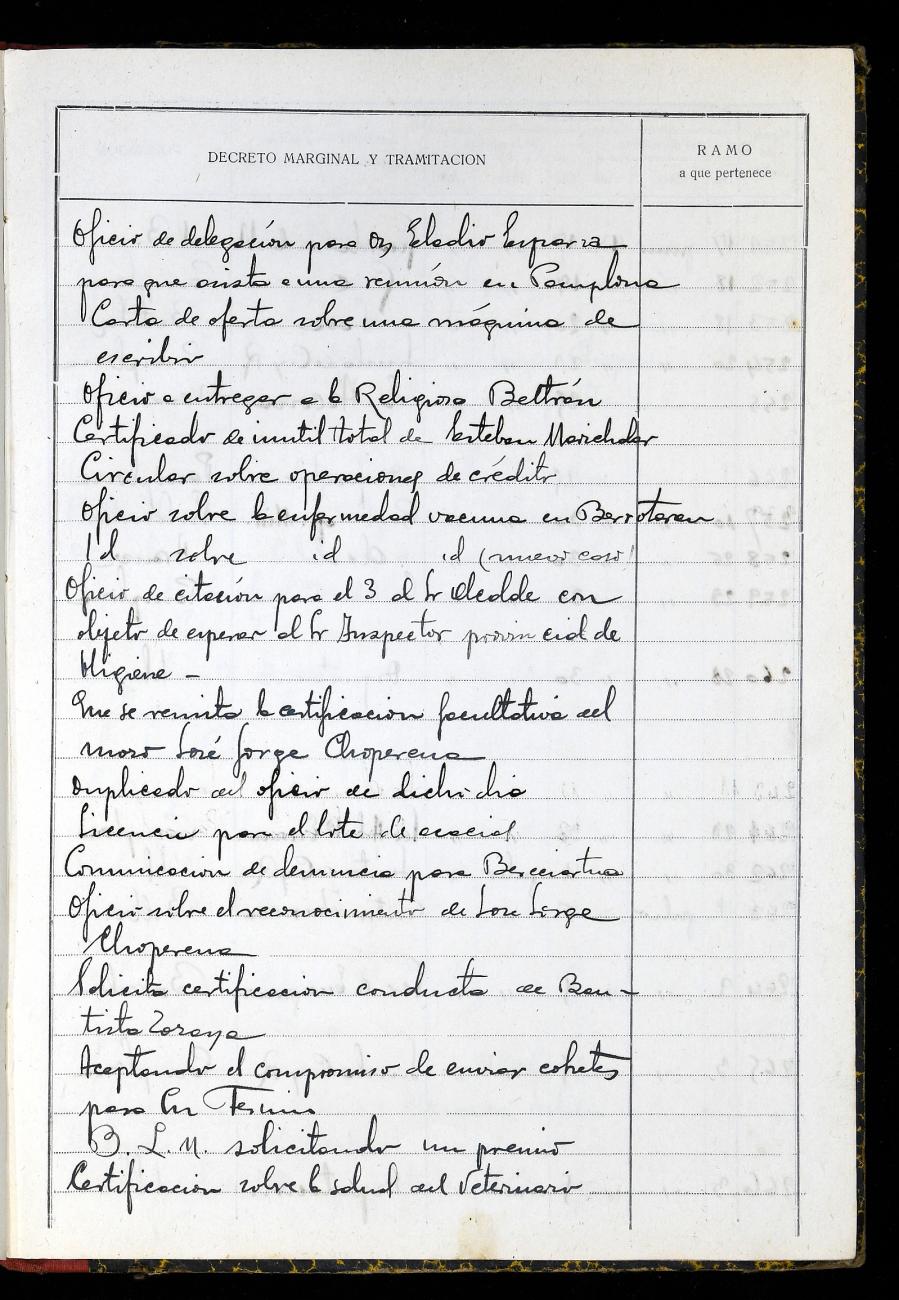 DECRETO MARGINAL Y TRAMITACION
RAMO
a que pertenece
Oficio de delegación para Dn Eladio Esparza
para que asista a una reunión en Pamplona
Carta de oferta sobre una máquina de
escribir
Oficio a entregar a la Religiosa Beltrán
Certificado de inutil total de Esteban Marichalar
Circular sobre operaciones de crédito
Oficio sobre la enfermedad vacuna en Berrotaran
Id sobre id id (nuevo caso)
Oficio de citación para el 3 al Sr Alcalde con
objeto de esperar al Sr Inspector provincial de
Higiene -
Que se remita la certificacion facultativa del
mozo José Jorge Choperena
Duplicado del oficio de dicho dia
Licencia para el lote de
Comunicacion de denuncia para Berceiartua
Oficio sobre el reconocimiento de Jose Jorge
Choperena
Solicita certificacion conducta de Bau-
tista Zoraya
Aceptando el compromiso de enviar cohetes
para Sn Fermin
B. L. M. solicitando un premio
Certificacion sobre la salud del Veterinario